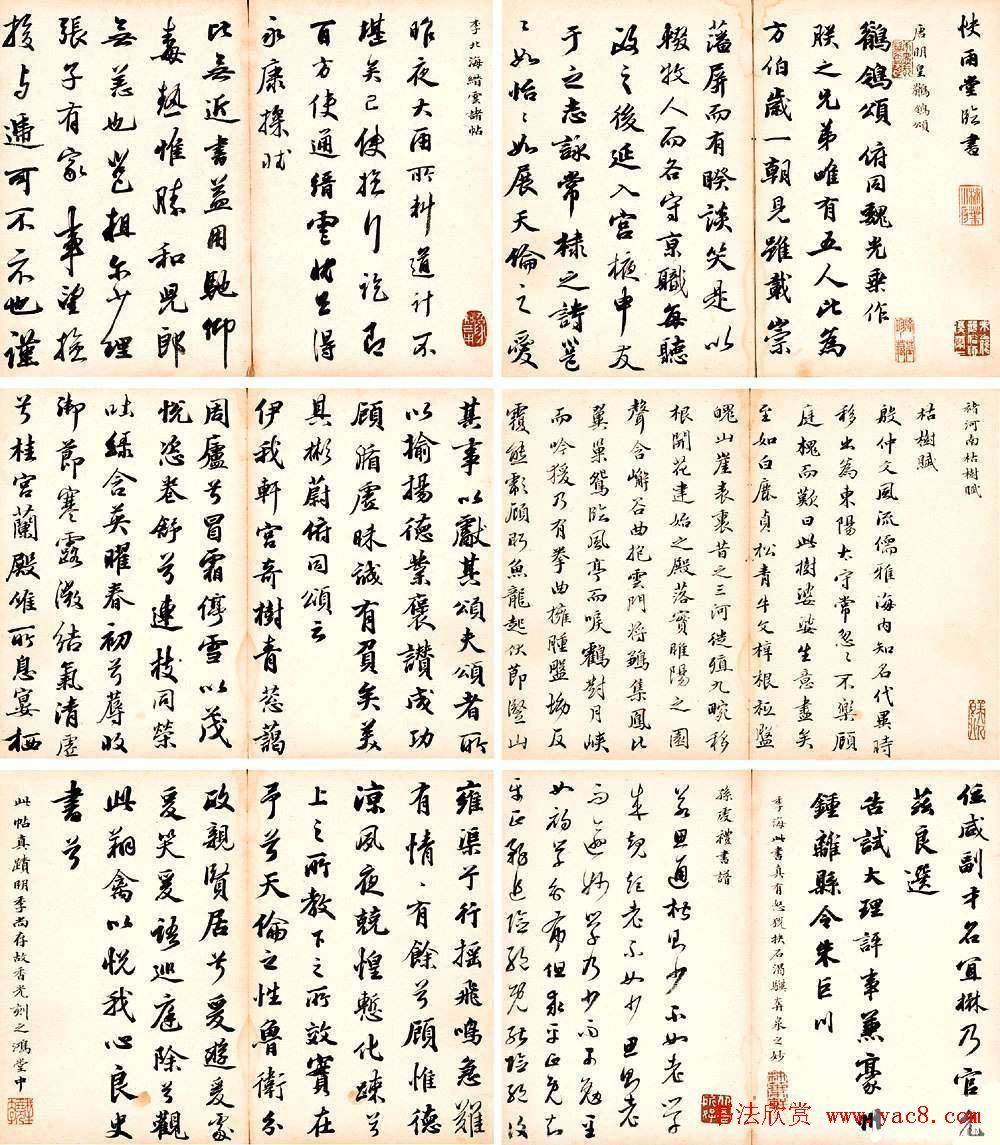 快雨堂臨書
唐明皇鶺鴒頌
鶺鴒頌 俯同魏光乘作
朕之兄弟唯有五人比為
方伯歲一朝見雖載崇
藩屏而有睽談笑是以
輟牧人而各守京職每聽
政之後延入宮掖申友
于之志詠常棣之詩邕
〻如怡〻如展天倫之愛
李北海縉雲諸帖
昨夜大雨所料道計不
堪矣已使於行訖即
百方使通縉雲得
永康操狀
比無近書益用馳仰
毒熱惟勝和兒郎
無恙也邕粗尔少理
張子有家事望於
投与遞可不示也謹
褚河南枯樹賦
枯樹賦
殷仲文風流儒雅海内知名代異時
移出為東陽太守常忽〻不樂顧
庭槐而歎曰此樹婆娑生意盡矣
至如白鹿貞松青牛文梓根柢盤
魄山崖表裏昔之三河徙殖九畹移
根開花建始之殿落實睢陽之園
聲含嶰谷曲抱雲門將鶵集鳳比
翼巢鴛臨風亭而唳鶴對月峽
而吟猨乃有拳曲擁腫盤坳反
覆熊彪顧盼魚龍起伏節竪山
其事以獻其頌夫頌者所
以揄揚德業襃讚成功
顧循虛昧誠有負矣美
其彬蔚俯同頌云
伊我軒宮奇樹青葱藹
周廬兮冒霜停雪以茂
悅恣卷舒兮連枝同榮
吐綠含英曜春初兮蓐收
御節寒露微結氣清虛
兮桂宮蘭殿唯所息宴栖
位咸副才名宜楙乃官允
茲良選
告試大理評事兼豪州
鍾離縣令朱巨川
季海此書真有怒猊抉石渴驥奔泉之妙
孫虔禮書譜
若思通楷則少不如老學
成規矩老不如少思則老
而逾妙學乃少而可勉至
如初學分布但求平正既知
平正務追險絶既能險絶復
雍渠兮行摇飛鳴急難
有情〻有餘兮顧惟德
涼夙夜兢惶慙化踈兮
上之所教下之所效實在
予兮天倫之性魯衛分
政親賢居兮爰遊爰處
爰笑爰語巡庭除兮觀
此翔禽以悅我心良史
書兮
此帖真蹟明季尚存故香光刻之鴻堂中
书法欣赏 www.yac8.com